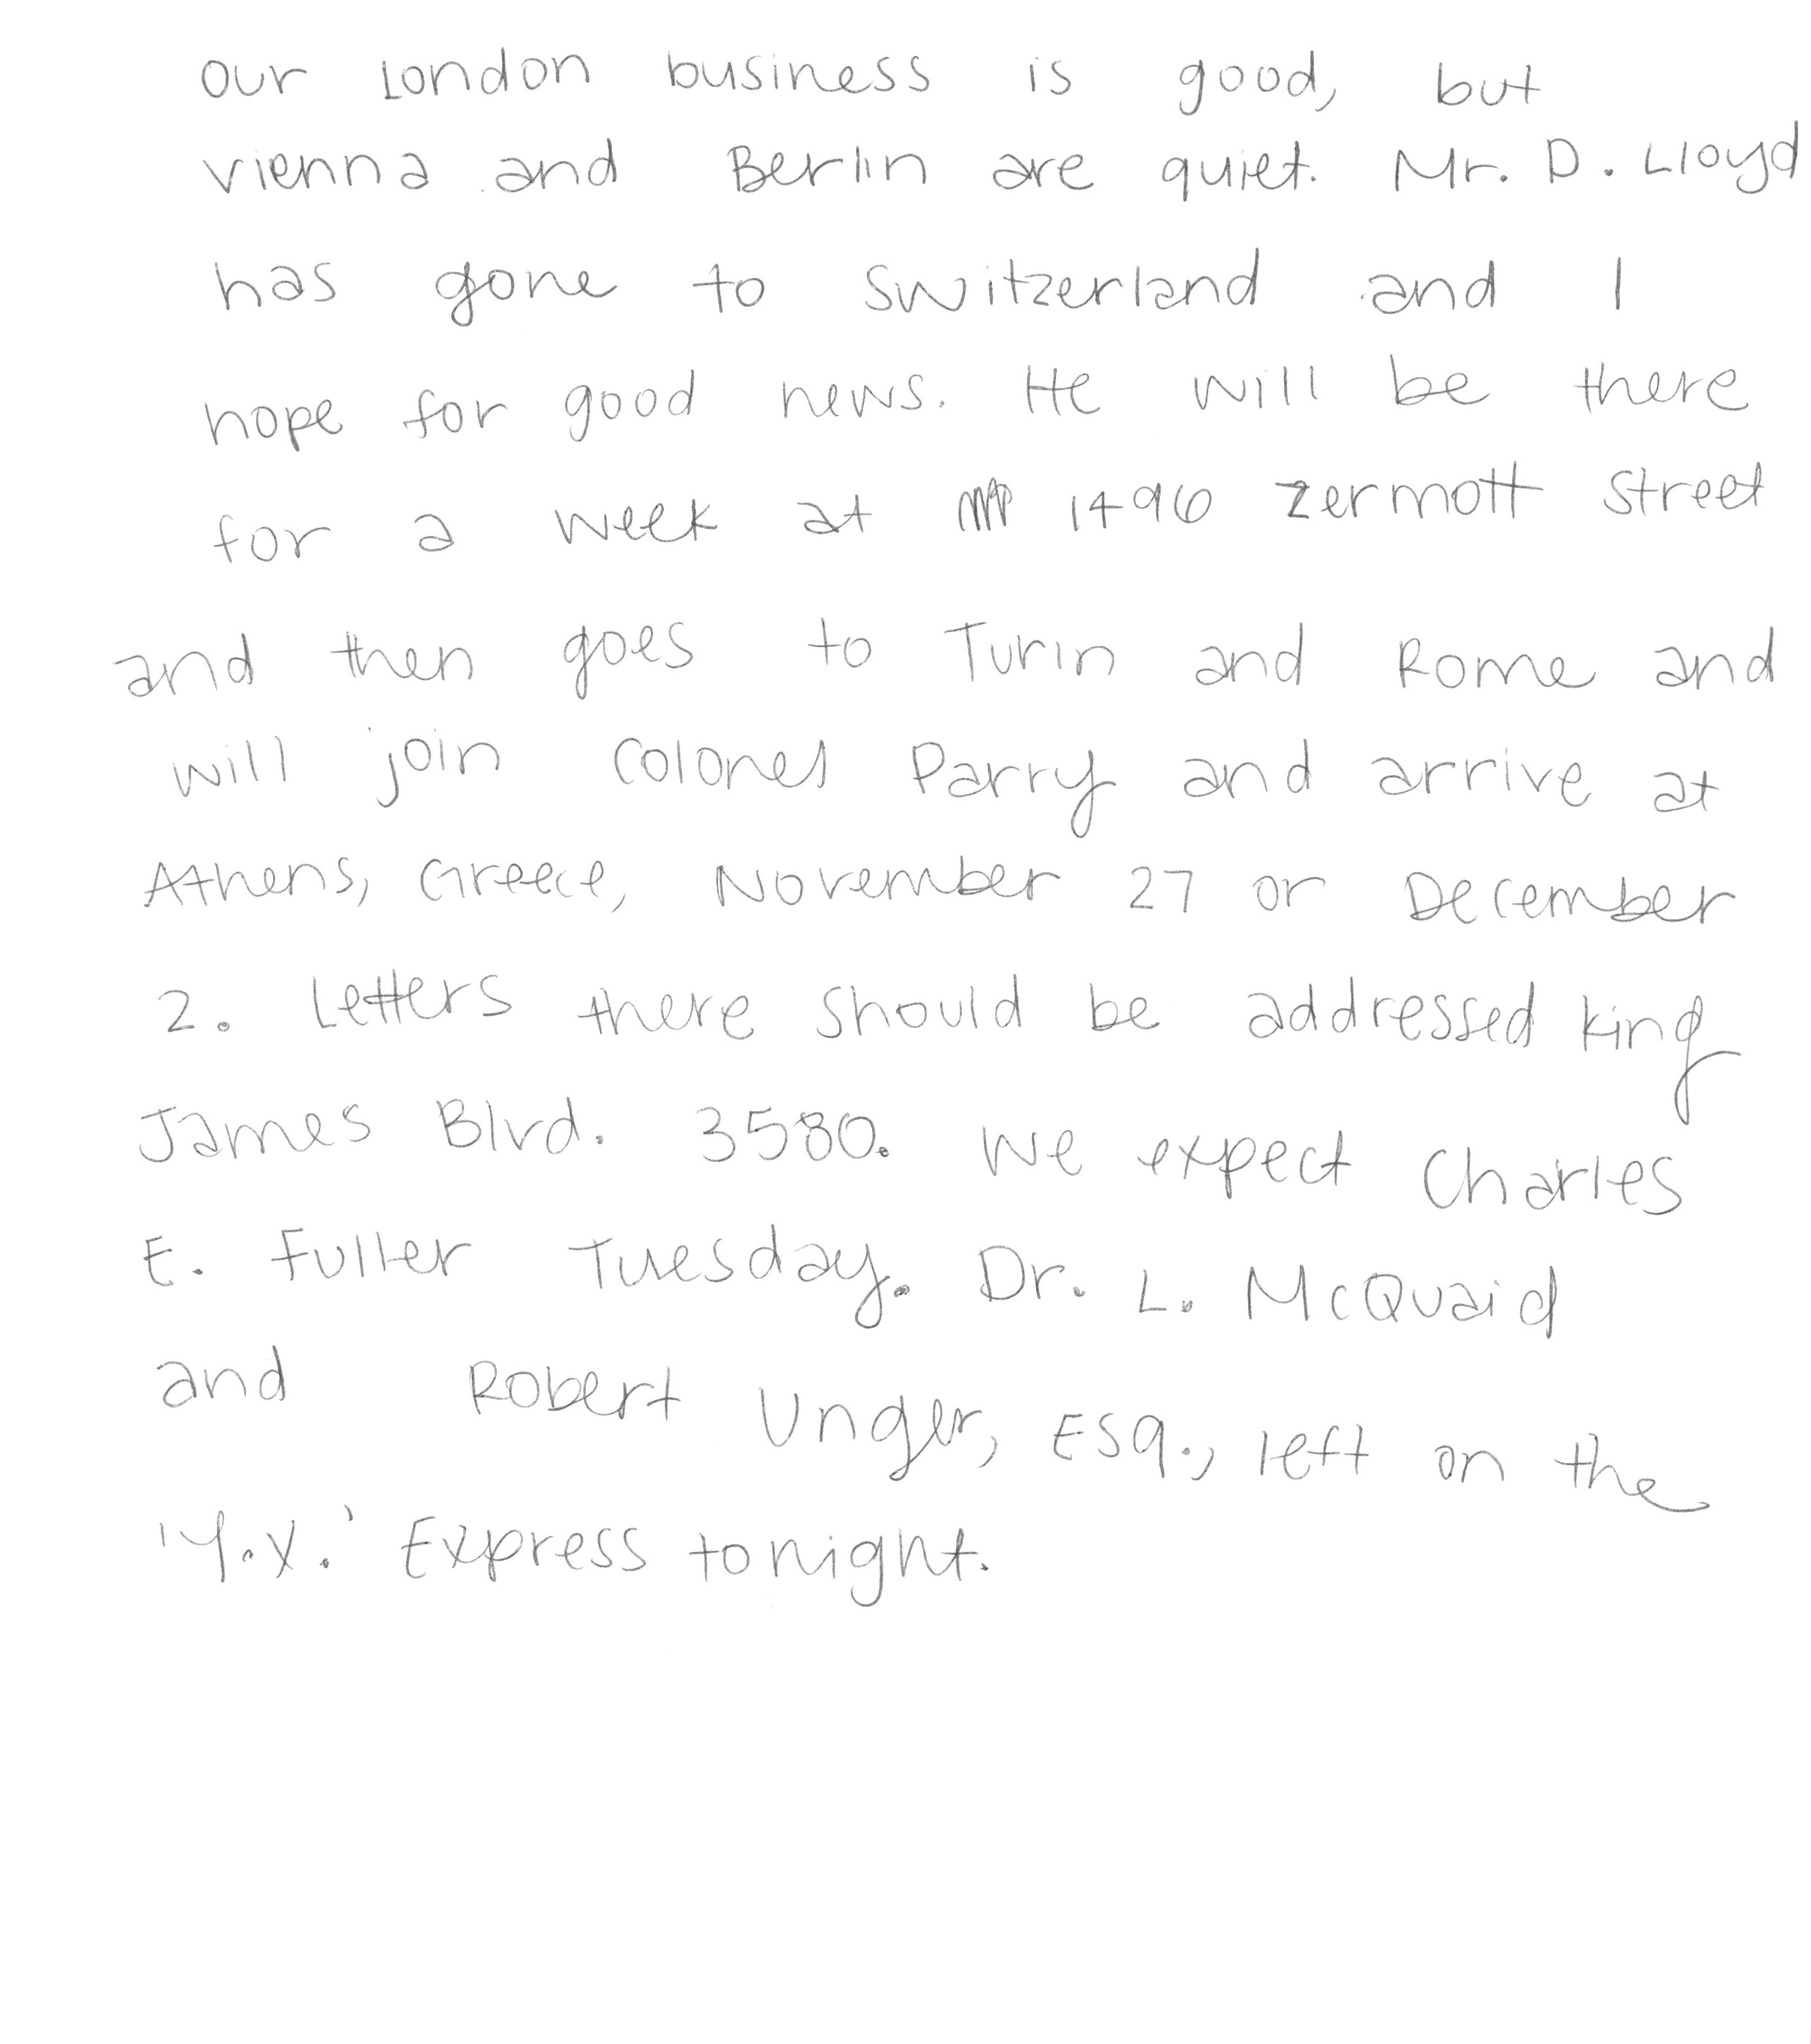 our London business is good, but
vienna and Berlin are quiet. Mr. D. Lloyd
has gone to switzerland and I
hope for good news. He will be there
for a week at 1496 zermott street
and then goes to Turin and Rome and
will join colonel Parry and arrive at
Athens, Greece, November 27 or December
2. Letters there should be addressed King
James Blvd. 3580. We expect Charles
E. Fuller Tuesday. Dr. L. McQuaid
and Robert Unger, Esq., left on the
'Y.X.' Express tonight.